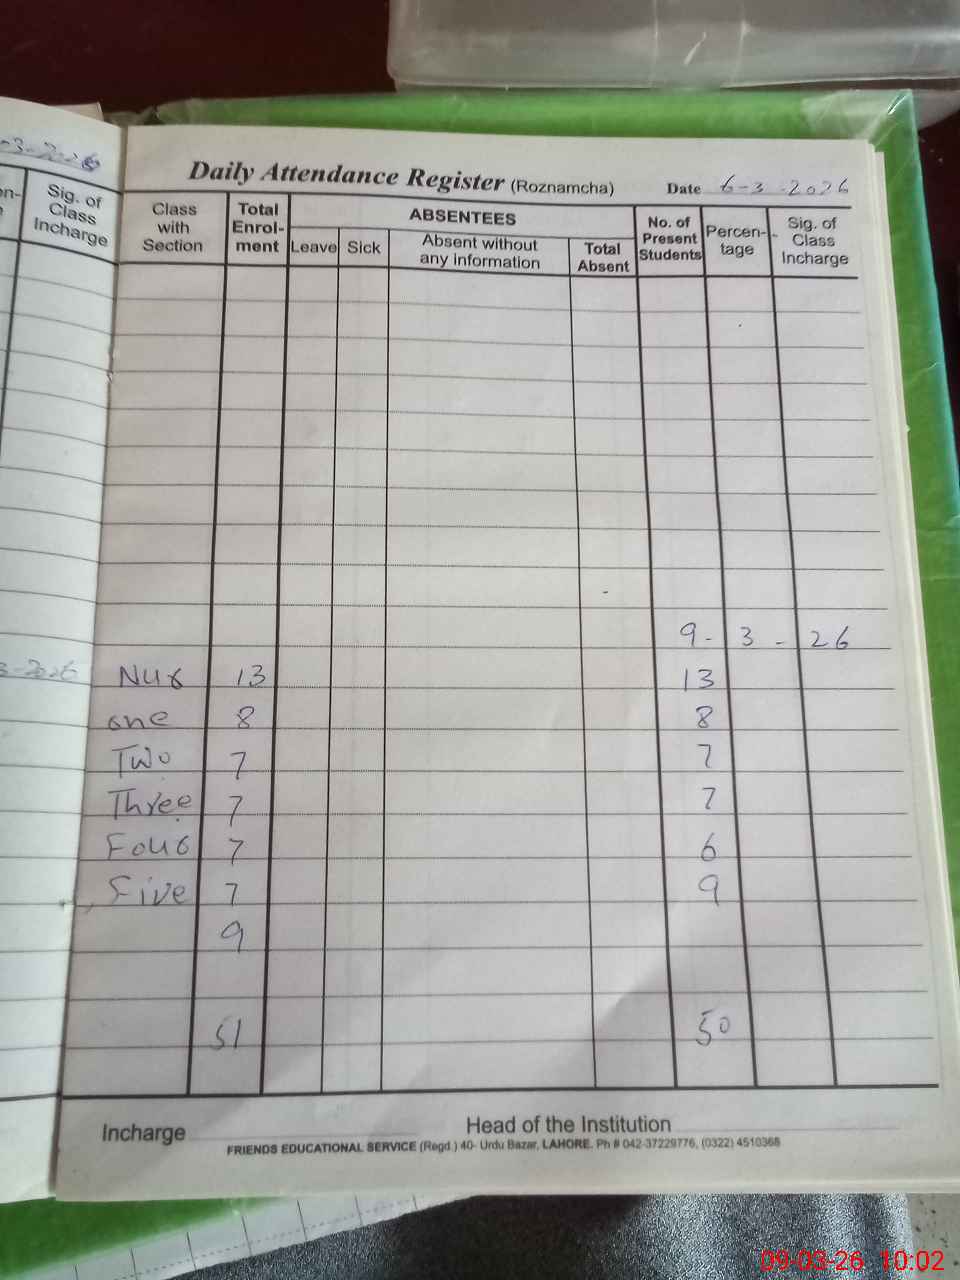 -3-2026
Sig. of
Class
Incharge
3-2026
Daily Attendance Register (Roznamcha) Date 6-3-2026
Class with Section
Total Enrol-ment
ABSENTEES
Leave
Sick
Absent without any information
Total Absent
No. of Present Students
Percen-tage
Sig. of Class Incharge
9-3-26
Nur 13 13
one 8 8
Two 7 7
Three 7 7
Four 7 6
Five 7 9
9
51 50
Incharge
Head of the Institution
FRIENDS EDUCATIONAL SERVICE (Regd.) 40- Urdu Bazar, LAHORE. Ph # 042-37229776, (0322) 4510368
09-03-26 10:02